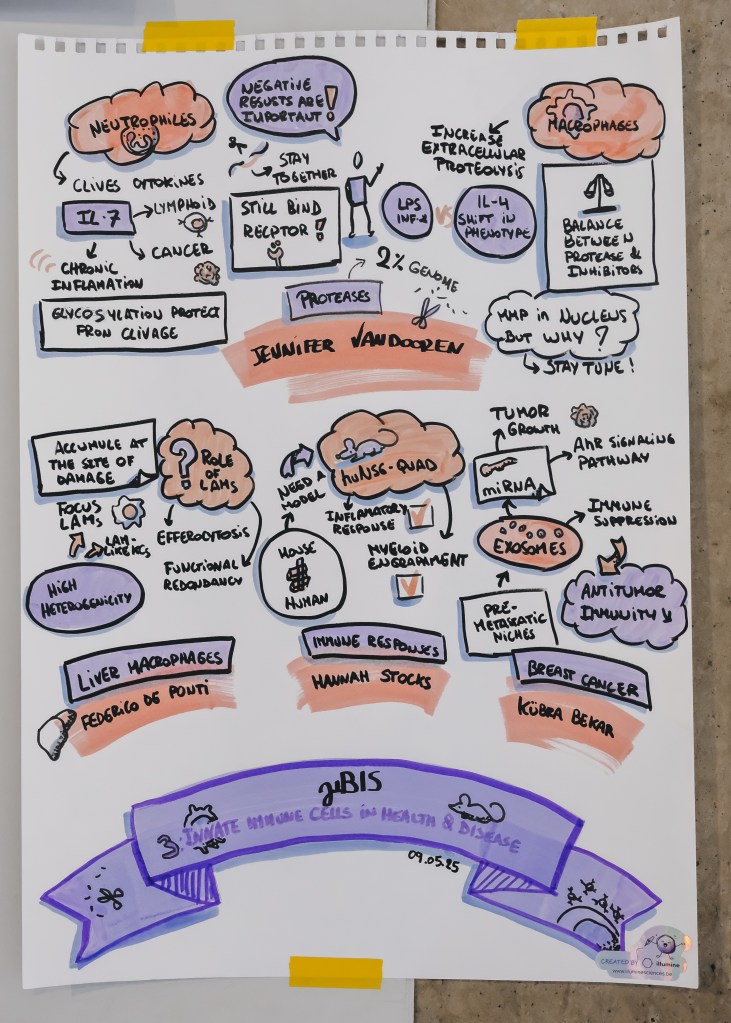 NEUTROPHILES
NEGATIVE
RESULTS ARE
IMPORTANT !
MACROPHAGES
CLIVES CITOKINES
IL-7
LYMPHOID
CANCER
CHRONIC
INFLAMATION
GLYCOSYLATION PROTECT
FROM CLIVAGE
STAY
TOGETHER
STILL BIND
RECPTOR !
INCREASE
EXTRACELLULAR
PROTEOLYSIS
LPS
INF-γ
VS
IL-4
SHIFT IN
PHENOTYPE
BALANCE
BETWEEN
PROTEASE &
INHIBITORS
2% GENOME
PROTEASES
MMP in NUCLEUS
BUT WHY ?
STAY TUNE !
JENNIFER VANDOOREN
ACCUMULE AT
THE SITE OF
DAMAGE
? ROLE
OF
LAMs
FOCUS
LAMs
LAM-
LIKE KCs
EFFEROCYTOSIS
FUNCTIONAL
REDONDANCY
HIGH
HETEROGENICITY
LIVER MACROPHAGES
FEDERICO DE PONTI
NEED A
MODEL
huNSG-QUAD
INFLAMATORY
RESPONSE
MYELOID
ENGRAPMENT
MOUSE
HUMAN
IMMUNE RESPONSES
HANNAH STOCKS
TUMOR
GROWTH
miRNA
AhR SIGNALING
PATHWAY
EXOSOMES
IMMUNE
SUPPRESSION
PRE-
METASTATIC
NICHES
ANTITUMOR
IMMUNITY ↘
BREAST CANCER
KÜBRA BEKAR
μBIS
3. INNATE IMMUNE CELLS IN HEALTH & DISEASE
09.05.25
CREATED BY illumine